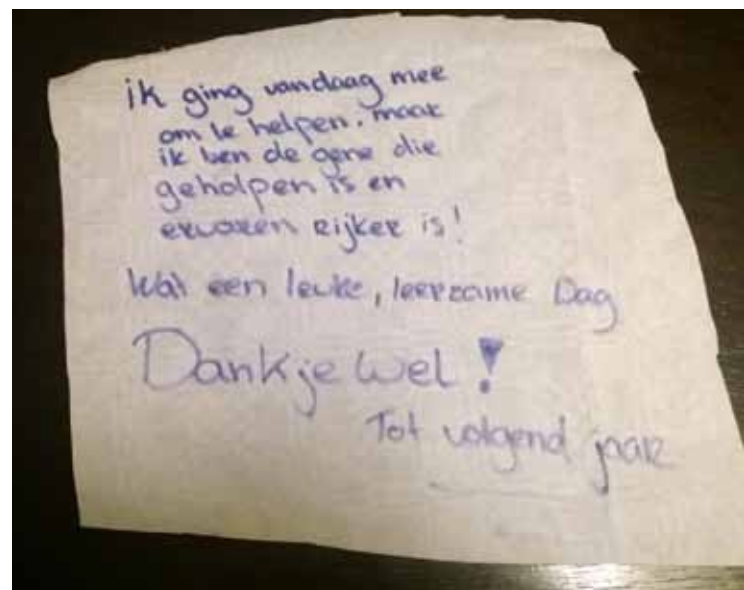 ik ging vandaag mee
om te helpen. maar
ik ben de gene die
geholpen is en
ervaren rijker is!
Wat een leuke, leerzame Dag
Dankjewel!
Tot volgend jaar